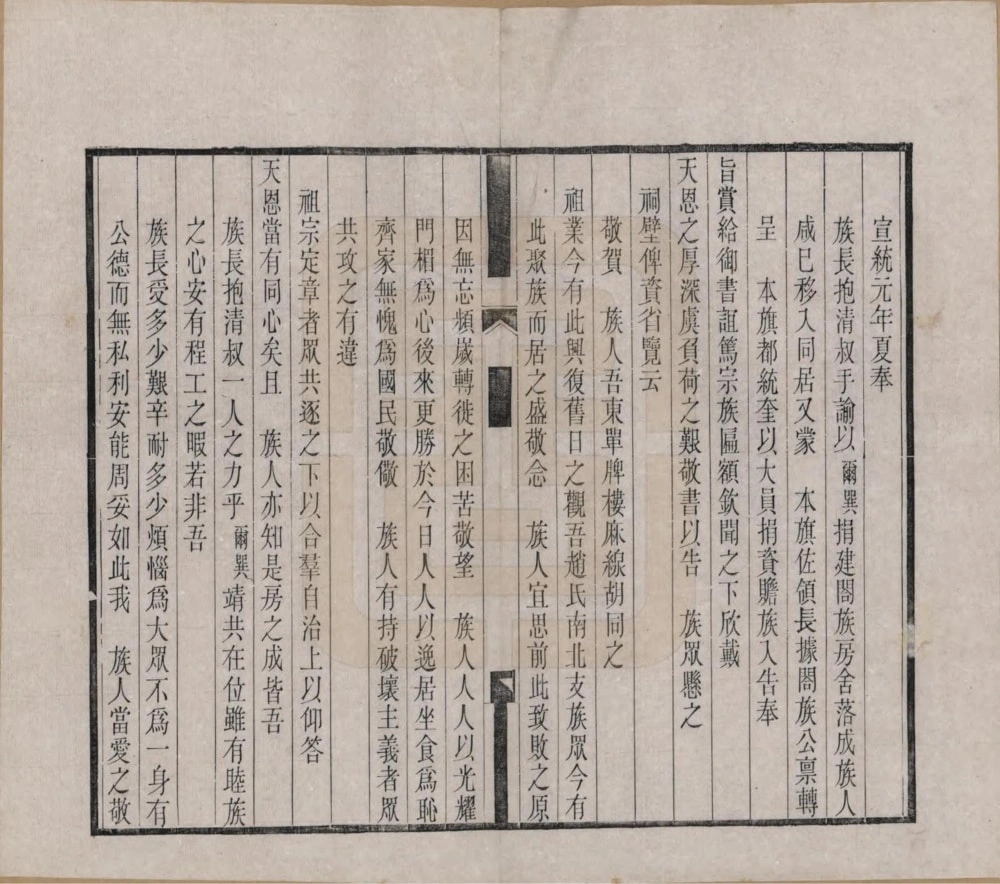 宣統元年夏奉
族長抱清叔手諭以爾巽捐建閤族房舍落成族人
咸已移入同居又蒙　本旗佐領長據閤族公稟轉
呈　本旗都統奎以大員捐資贍族入告奉
旨賞給御書誼篤宗族匾額欽聞之下欣戴
天恩之厚深虞負荷之艱敬書以告　族眾懸之
祠壁俾資省覽云
敬賀　族人吾東單牌樓麻線胡同之
祖業今有此興復舊日之觀吾趙氏南北支族眾今有
此聚族而居之盛敬念　族人宜思前此致敗之原
因無忘頻歲轉徙之困苦敬望　族人人人以光耀
門楣為心後來更勝於今日人人以逸居坐食為恥
齊家無愧為國民敬儆　族人有持破壞主義者眾
共攻之有違
祖宗定章者眾共逐之下以合羣自治上以仰答
天恩當有同心矣且　族人亦知是房之成皆吾
族長抱清叔一人之力乎爾巽靖共在位雖有睦族
之心安有程工之暇若非吾
族長受多少艱辛耐多少煩惱為大眾不為一身有
公德而無私利安能周妥如此我　族人當愛之敬